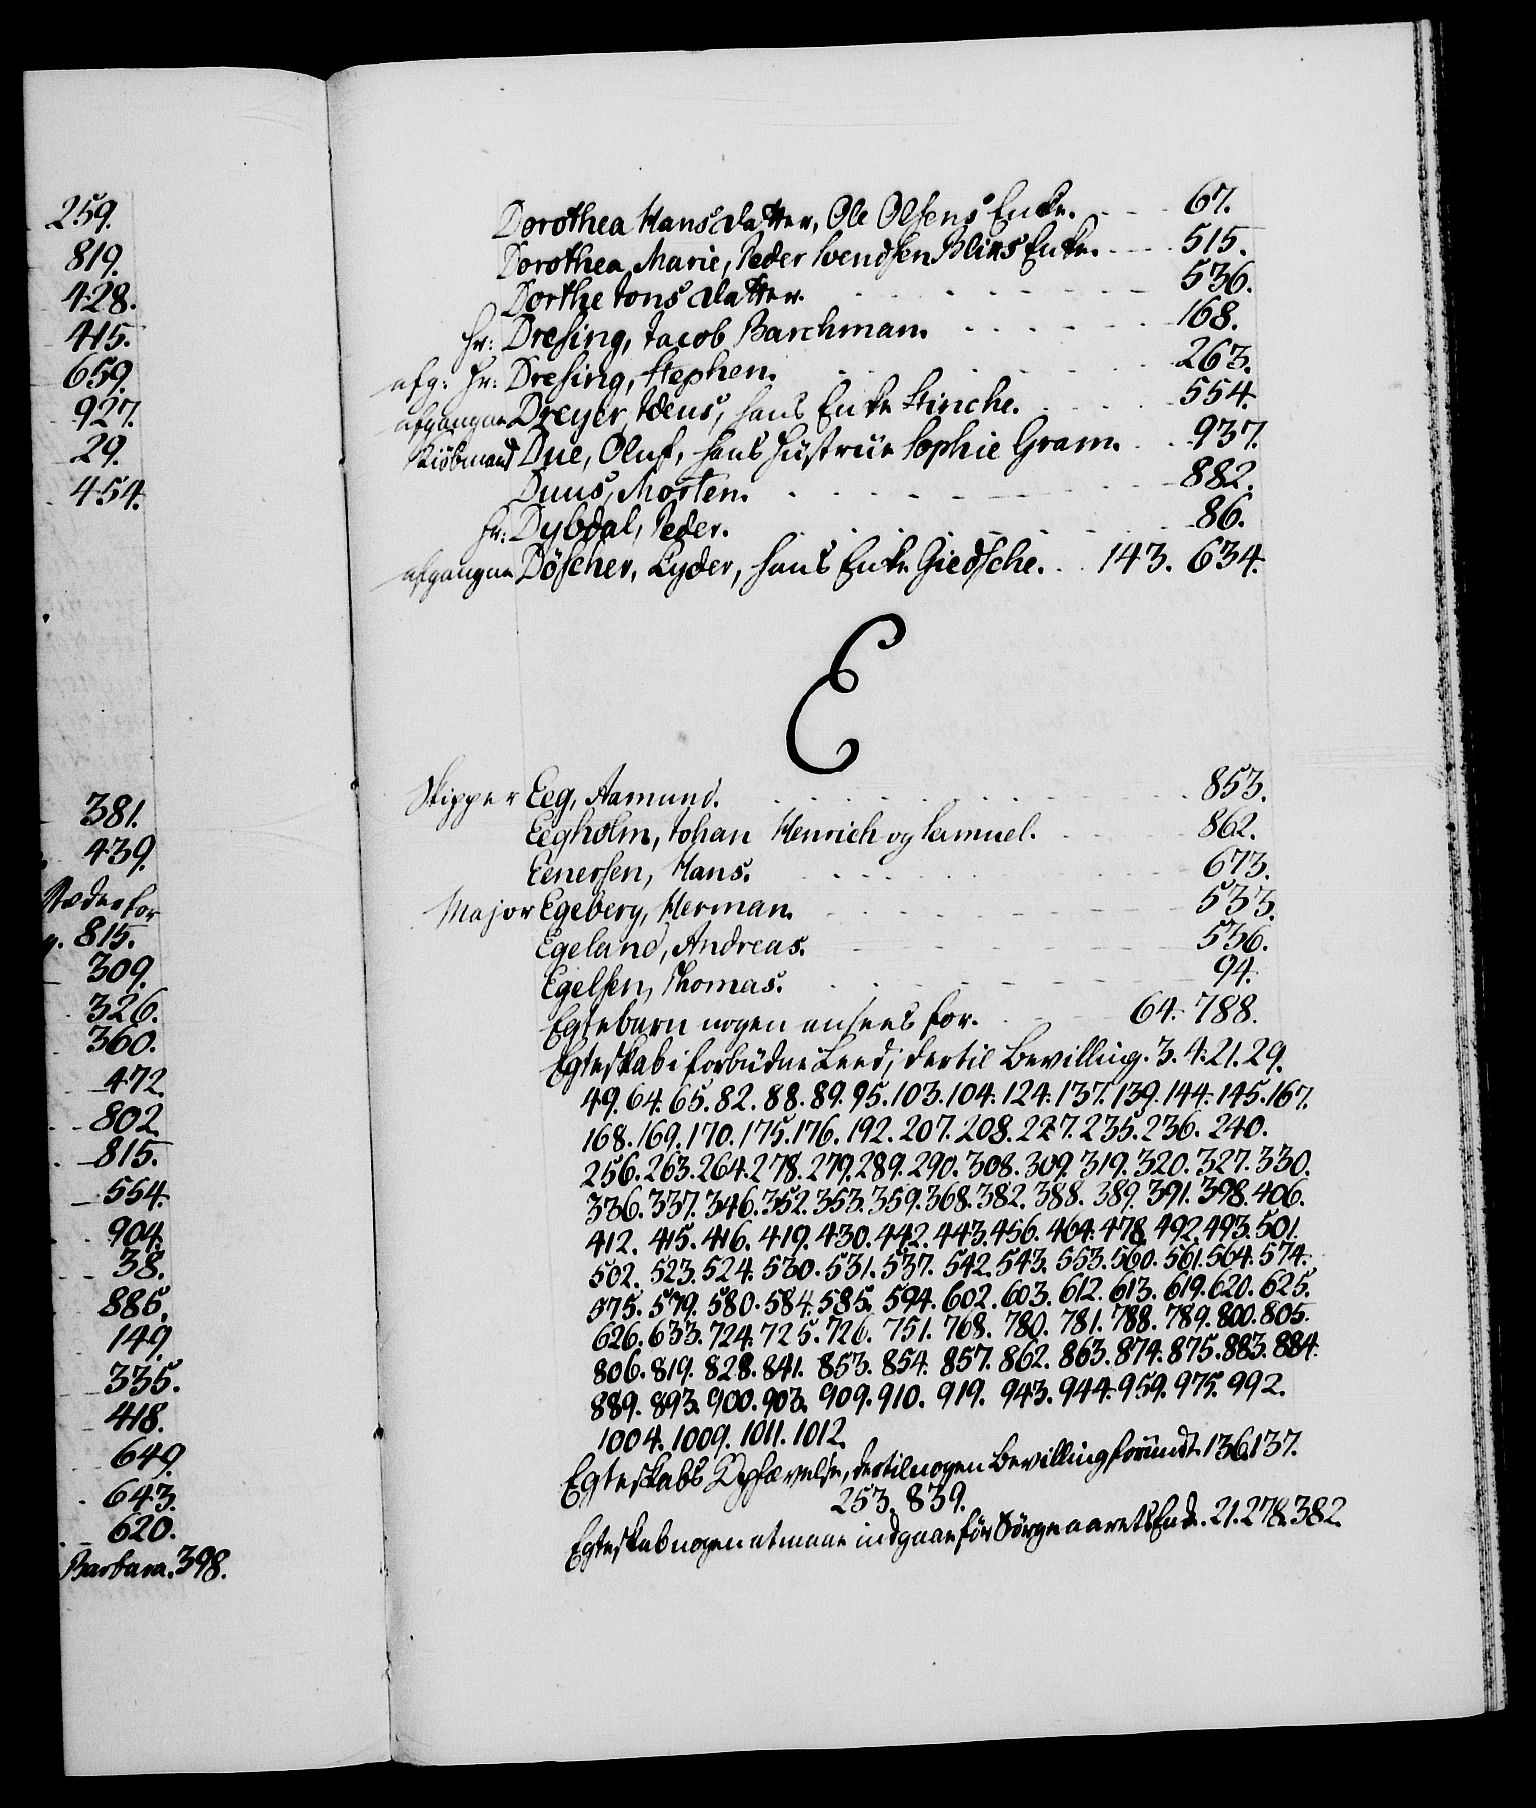 259.
819.
428.
415.
659.
927.
29.
454.
381.
439.
815.
309.
326.
360.
472.
802.
815.
554.
904.
38.
885.
149.
335.
418.
649.
643.
620.
Barbara. 398.
Dorothea Hansdatter, Ole Olsens Enke. 67.
Dorothea Marie, Peder Svendsen Blixs Enke. 515.
Dorthe Jonsdatter. 536.
Hr: Dresing, Jacob Barchman. 168.
afg: Hr: Dresing, Stephen. 263.
afgangne Dreyer, Jens, hans Enke Stinche. 554.
Kiöbmand Due, Oluf, hans Hustrue Sophie Gram. 937.
Duus, Morten. 882.
Hr: Dybdal, Peder. 86.
afgangne Döscher, Lyder, hans Enke Giedsche. 143. 634.
E
Skipper Eeg, Aamund. 853.
Eegholm, Johan Henrich og Samuel. 862.
Eenersen, Hans. 673.
Major Egeberg, Herman. 533.
Egeland, Andreas. 536.
Egelsen, Thomas. 94.
Egtebarn nogen ansees for. 64. 788.
Egteskab i forbudne Leed, dertil Bevilling. 3. 4. 21. 29.
49. 64. 65. 82. 88. 89. 95. 103. 104. 124. 137. 139. 144. 145. 167.
168. 169. 170. 175. 176. 192. 207. 208. 227. 235. 236. 240.
256. 263. 264. 278. 279. 289. 290. 308. 309. 319. 320. 327. 330.
336. 337. 346. 352. 353. 359. 368. 382. 388. 389. 391. 398. 406.
412. 415. 416. 419. 430. 442. 443. 456. 464. 478. 492. 493. 501.
502. 523. 524. 530. 531. 537. 542. 543. 553. 560. 561. 564. 574.
575. 579. 580. 584. 585. 594. 602. 603. 612. 613. 619. 620. 625.
626. 633. 724. 725. 726. 751. 768. 780. 781. 788. 789. 800. 805.
806. 819. 828. 841. 853. 854. 857. 862. 863. 874. 875. 883. 884.
889. 893. 900. 903. 909. 910. 919. 943. 944. 959. 975. 992.
1004. 1009. 1011. 1012.
Egteskabs Ophævelse, dertil nogen Bevilling forundt. 136. 137.
253. 839.
Egteskab nogen at maae indgaae för Sörge aarets Ende. 21. 278. 382.